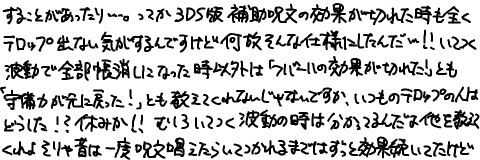 することがあったり…。ってか3DS版 補助呪文の効果が切れた時も全く
テロップ出ない気がするんですけど何故そんな仕様にしたんだい!!いてつく
波動で全部帳消しになった時以外は「スバールの効果が切れた!」とも
「守備力が元に戻った!」とも教えてくれないじゃないですか、いつものテロップの人は
どうした!?休みか!! むしろいてつく波動の時は分かってるんだな他を教えて
くれよ そりゃ昔は一度呪文唱えたらいてつかれるまではずっと効果続いてたけど